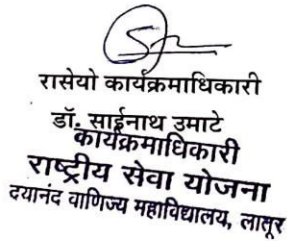 रासेयो कार्यक्रमाधिकारी
डॉ. साईनाथ उमाटे
कार्यक्रमाधिकारी
राष्ट्रीय सेवा योजना
दयानंद वाणिज्य महाविद्यालय, लातूर